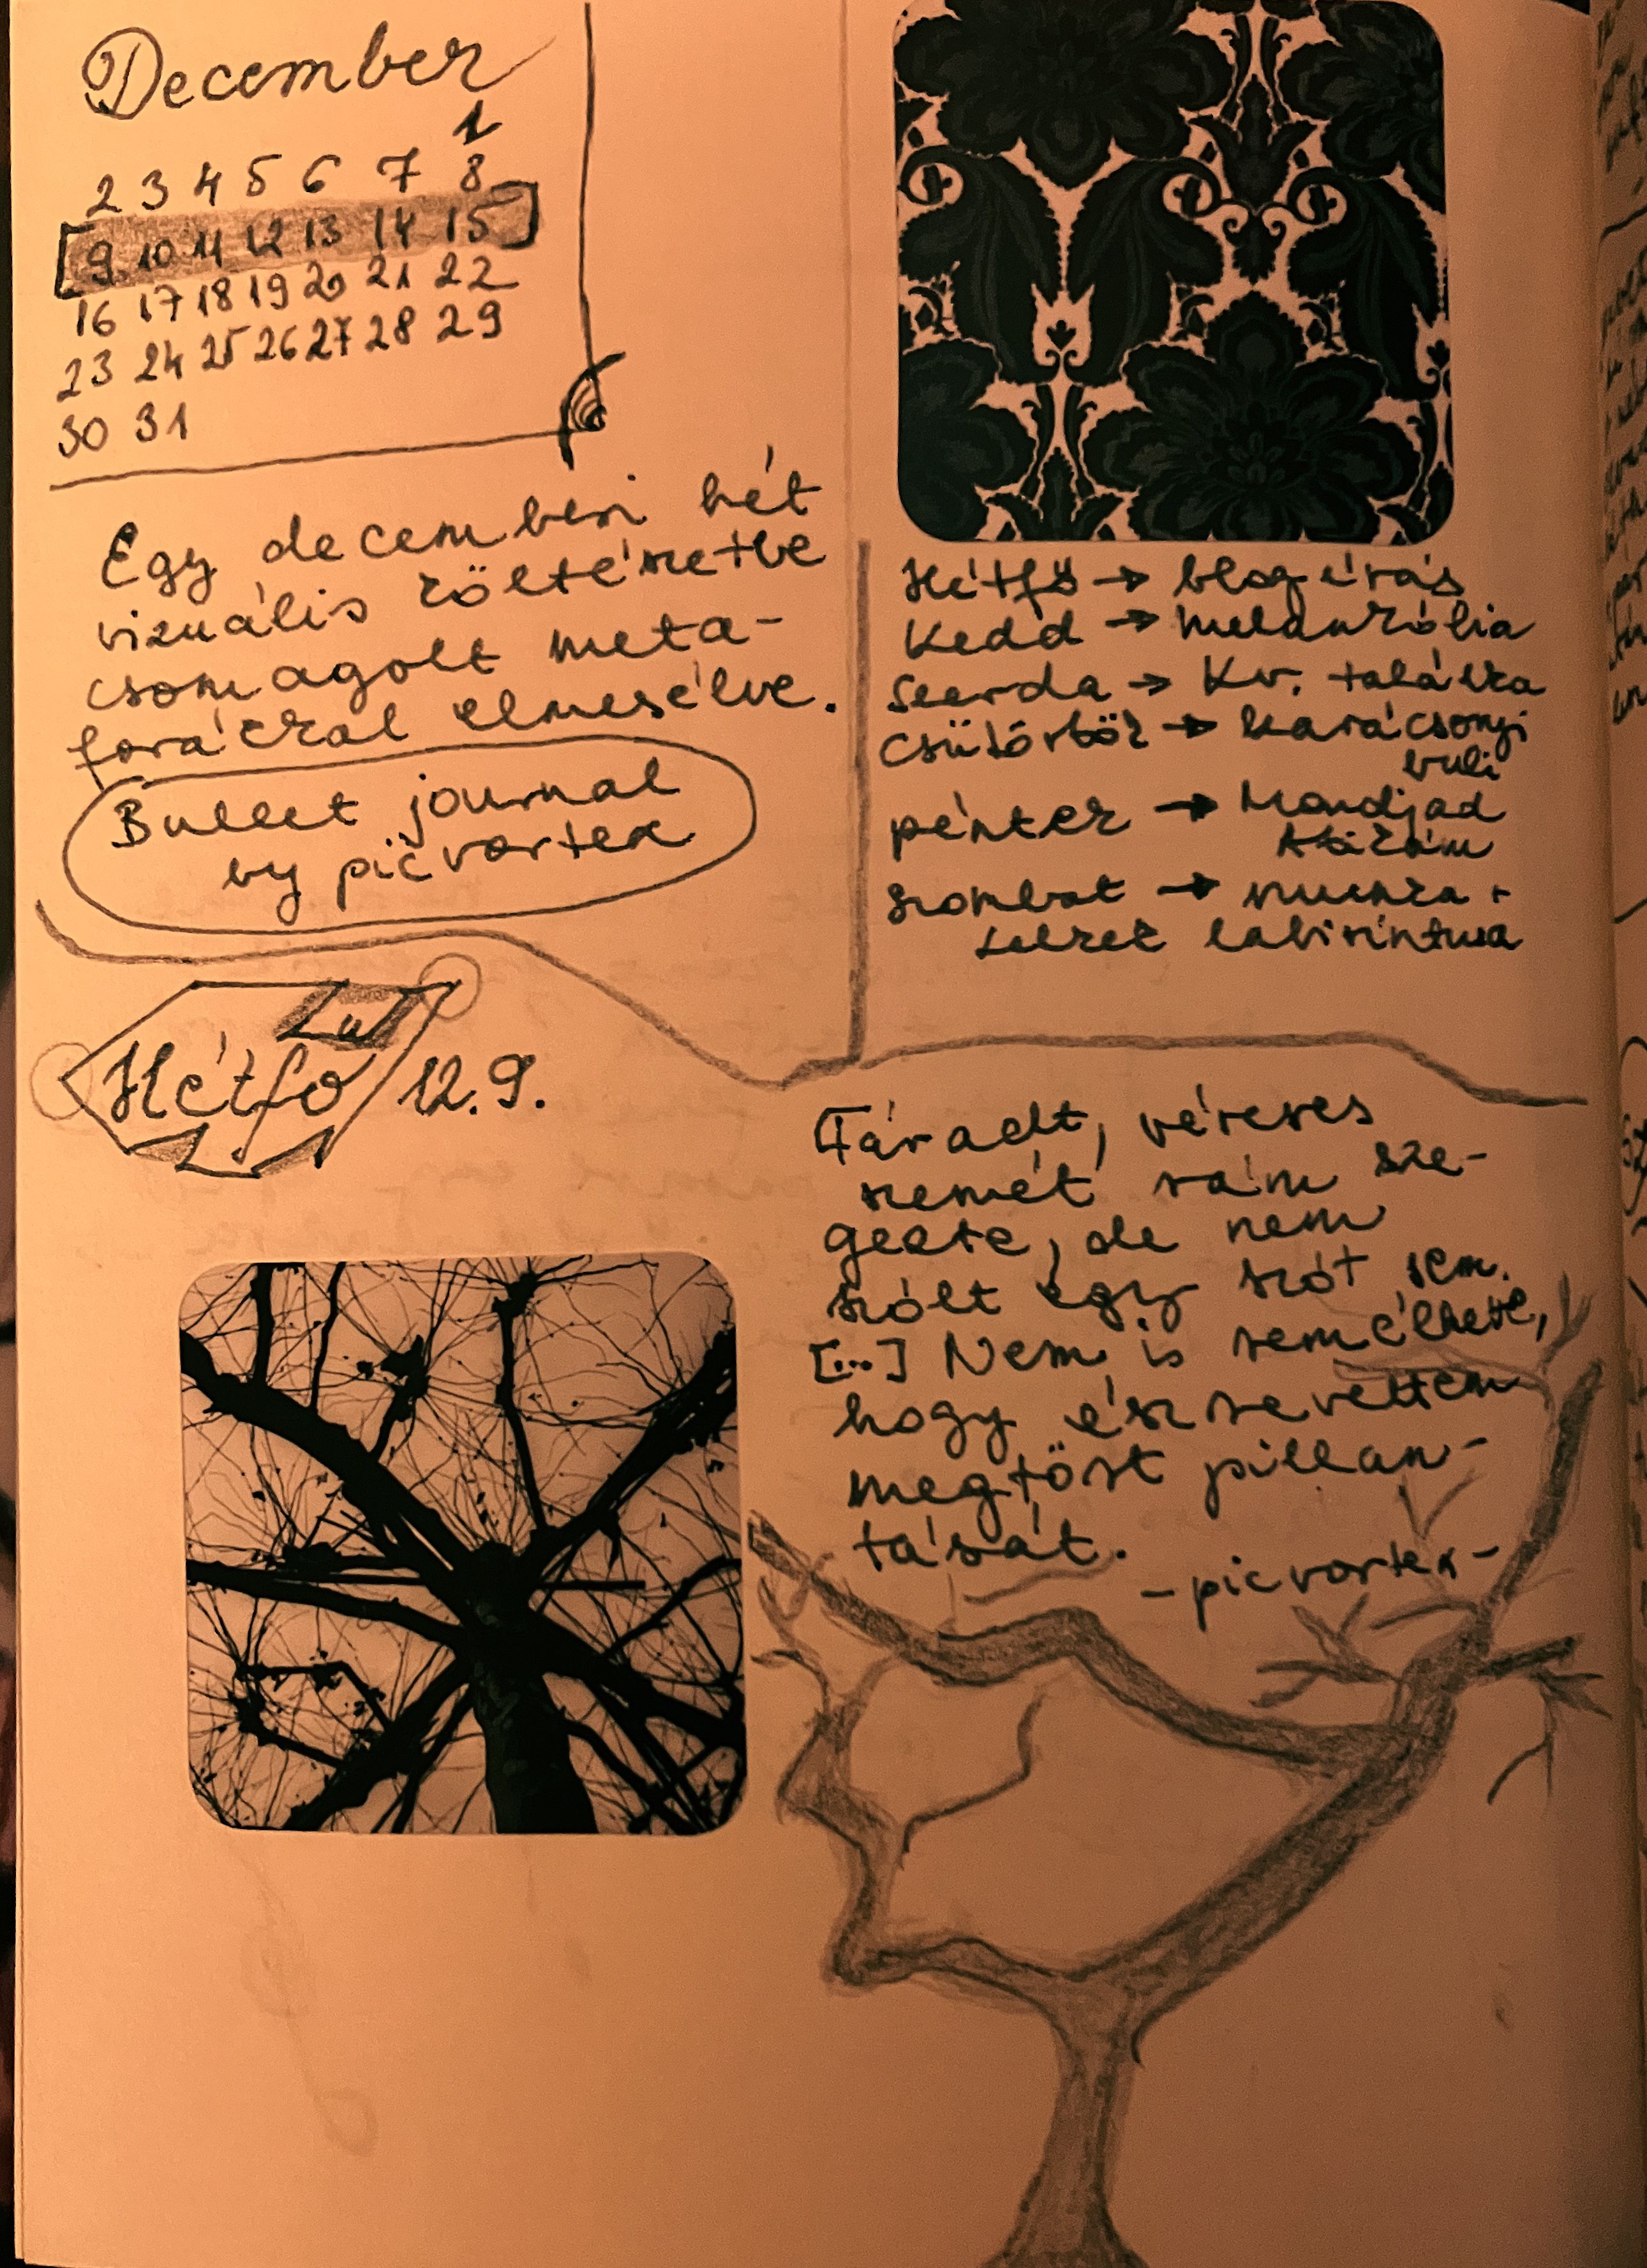 December
1
2 3 4 5 6 7 8
[9 10 11 12 13 14 15]
16 17 18 19 20 21 22
23 24 25 26 27 28 29
30 31
Egy decemberi hét
vizuális költészetbe
csomagolt meta-
forákkal elmesélve.
Bullet journal
by picvortex
Hétfő → blog írás
Kedd → melankólia
Szerda → Kv. találka
Csütörtök → karácsonyi
buli
péntek → Mondjad
Szombat → munka +
lelkek labirintusa
Hétfő 12.9.
Fáradt, véreres
szemét rám sze-
gezte, de nem
szólt egy szót sem.
[...] Nem is remélhette,
hogy észrevettem
megtört pillan-
tását.
-picvortex-